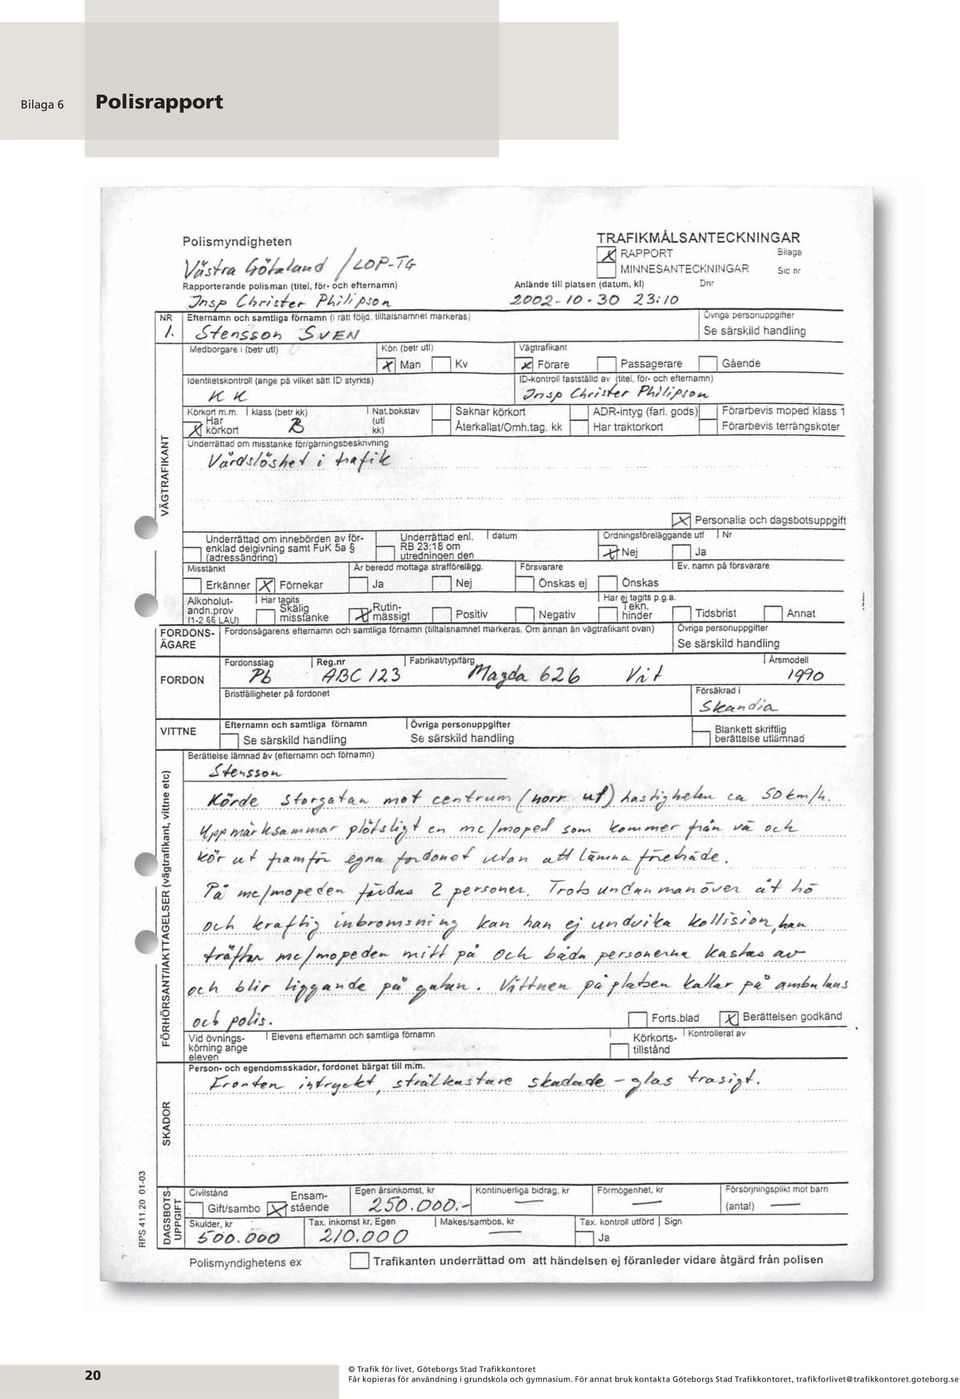 Bilaga 6 Polisrapport
Polismyndigheten
Västra Götaland / LOP-TG
TRAFIKMÅLSANTECKNINGAR
RAPPORT Bilaga
MINNESANTECKNINGAR Sid nr
Rapporterande polisman (titel, för- och efternamn) Anlände till platsen (datum, kl) Dnr
Insp Christer Philipson 2002-10-30 23:10
NR Efternamn och samtliga förnamn (i rätt följd, tilltalsnamnet markeras) Övriga personuppgifter
1. Stensson SVEN Se särskild handling
Medborgare i (betr utl) Kön (betr utl) Vägtrafikant
X Man Kv X Förare Passagerare Gående
Identitetskontroll (ange på vilket sätt ID styrkts) ID-kontroll fastställd av (titel, för- och efternamn)
K K Insp Christer Philipson
Körkort m.m. klass (betr kk) Nat.bokstav (utl kk) Saknar körkort ADR-intyg (farl. gods) Förarbevis moped klass 1
X Har körkort B Återkallat/Omh.tag. kk Har traktorkort Förarbevis terrängskoter
Underrättad om misstanke för/gärningsbeskrivning
Vårdslöshet i trafik
VÄGTRAFIKANT
X Personalia och dagsbotsuppgift
Underrättad om innebörden av förenklad delgivning samt FuK 5a § (adressändring) Underrättad enl. RB 23:18 om utredningen den datum Ordningsföreläggande utf Nr
X Nej Ja
Misstänkt Är beredd mottaga strafförelägg. Försvarare Ev. namn på försvarare
Erkänner X Förnekar Ja Nej Önskas ej Önskas
Alkoholutandn.prov (1-2 §§ LAU) Har tagits Skälig misstanke X Rutinmässigt Positiv Negativ Har ej tagits p.g.a. Tekn. hinder Tidsbrist Annat
FORDONS-ÄGARE Fordonsägarens efternamn och samtliga förnamn (tilltalsnamnet markeras. Om annan än vägtrafikant ovan) Övriga personuppgifter
Se särskild handling
FORDON Fordonsslag Reg.nr Fabrikat/typ/färg Årsmodell
Pb ABC 123 Mazda 626 Vit 1990
Bristfälligheter på fordonet Försäkrad i
Skandia
VITTNE Efternamn och samtliga förnamn Övriga personuppgifter
Se särskild handling Se särskild handling Blankett skriftlig berättelse utlämnad
FÖRHÖRSANT/IAKTTAGELSER (vägtrafikant, vittne etc)
Berättelse lämnad av (efternamn och förnamn)
Stensson
Körde Storgatan mot centrum (norr ut) hastigheten ca 50 km/h.
Uppmärksammar plötsligt en mc/moped som kommer från vä och
kör ut framför egna fordonet utan att lämna företräde.
På mc/mopeden färdas 2 personer. Trots undanmanöver åt hö
och kraftig inbromsning kan han ej undvika kollision, han
träffar mc/mopeden mitt på och båda personerna kastas av
och blir liggande på gatan. Vittnen på platsen kallar på ambulans
och polis.
Forts.blad X Berättelsen godkänd
Vid övningskörning ange eleven Elevens efternamn och samtliga förnamn Körkortstillstånd Kontrollerat av
SKADOR
Person- och egendomsskador, fordonet bärgat till m.m.
Fronten intryckt, strålkastare skadade - glas trasigt.
RPS 411.20 01-03
DAGSBOTS-UPPGIFT
Civilstånd Egen årsinkomst, kr Kontinuerliga bidrag, kr Förmögenhet, kr Försörjningsplikt mot barn (antal)
Gift/sambo X Ensamstående 250.000:- — — —
Skulder, kr Tax. inkomst kr, Egen Makes/sambos, kr Tax. kontroll utförd Sign
500.000 210.000 — Ja
Polismyndighetens ex Trafikanten underrättad om att händelsen ej föranleder vidare åtgärd från polisen
20
© Trafik för livet, Göteborgs Stad Trafikkontoret
Får kopieras för användning i grundskola och gymnasium. För annat bruk kontakta Göteborgs Stad Trafikkontoret, trafikforlivet@trafikkontoret.goteborg.se